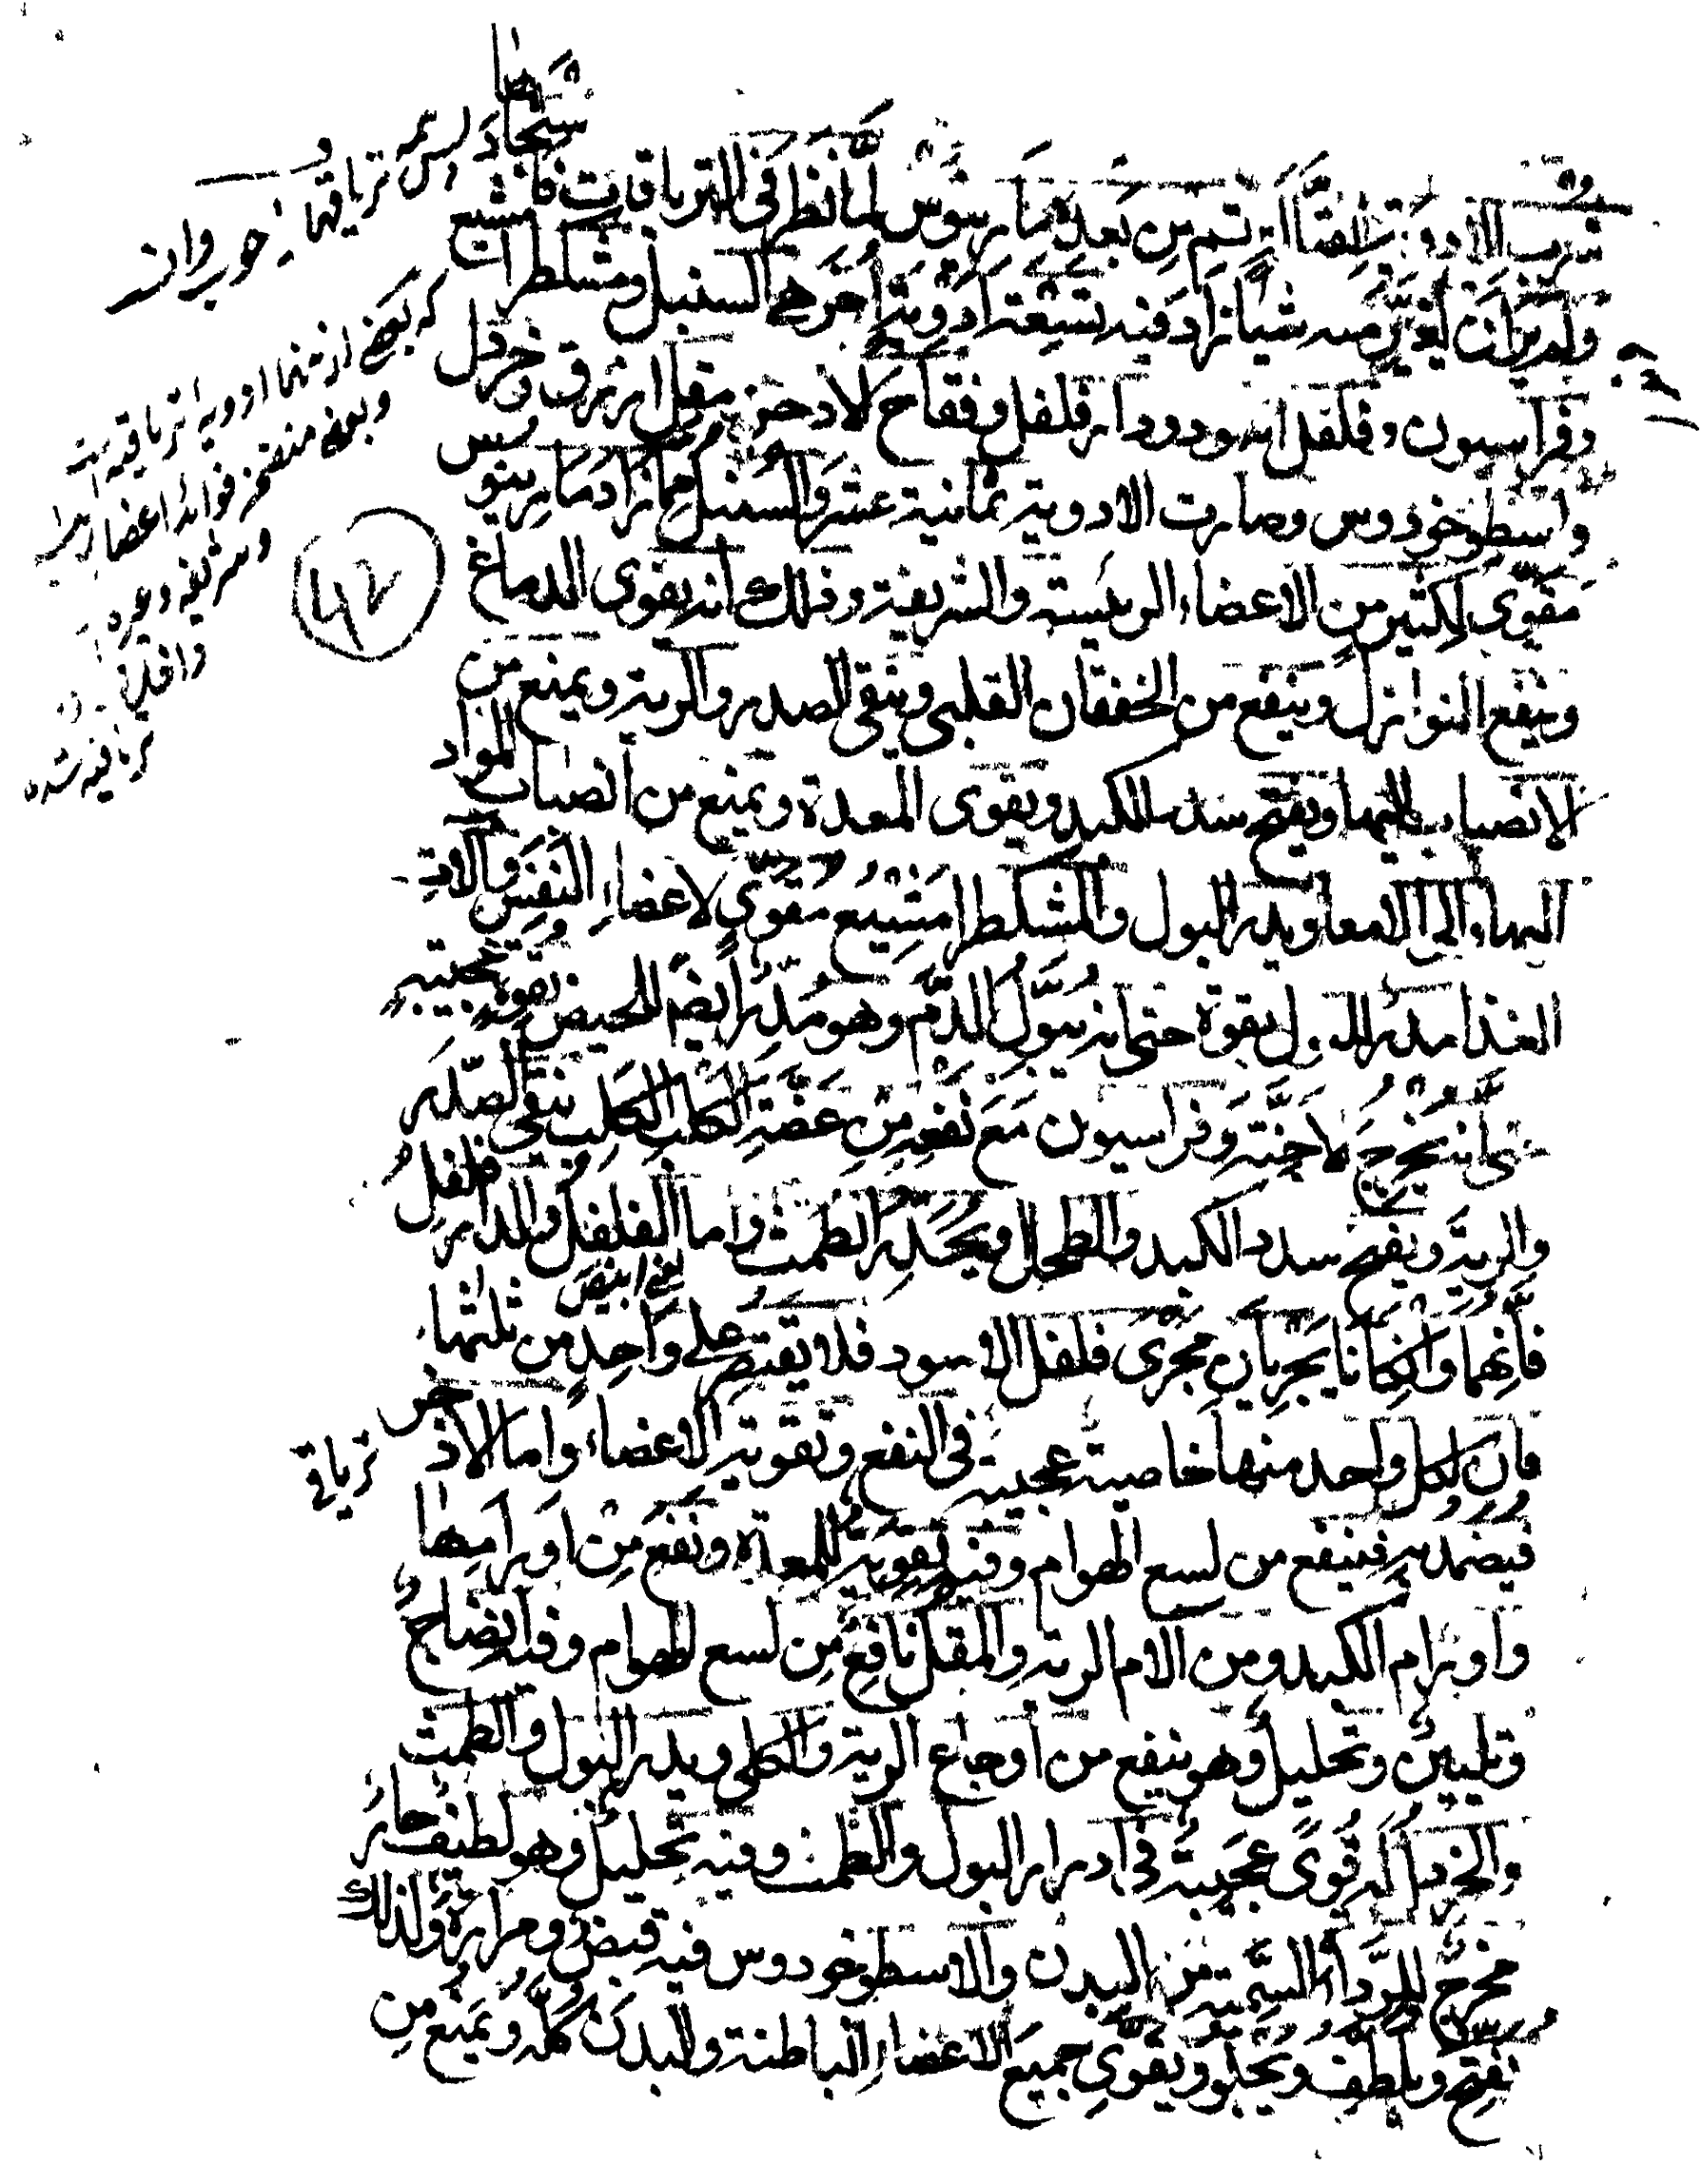 ثم من بعده مارينوس لما نظر في الترياقات فا
ولم ير ان يغير منه شيا زاد فيه تسعة ادوية اخر هي السنبل ومشكطرا مشيع
وفراسيون وفلفل اسود ودار فلفل وفقاح الاذخر مقل ازرق وخردل
واسطوخودوس وصارت الادوية ثمانية عشر والسنبل مما زاد مارينوس
مقوي لكثير من الاعضاء الرئيسة والشريفة وذلك انه يقوى الدماغ
وينفع النوازل وينفع من الخفقان القلبى وينقى الصدر والرية ويمنع من
الانصباب اليها ويفتح سدد الكبد ويقوى المعدة ويمنع من انصباب المواد
اليها والى الامعا ويدر البول والمشكطرامشيع مقوي لاعضاء النفس والات
الغذا مدر البول بقوة حتى انه يبول الدم وهو مدر ايضا للحيض بقوة عجيبة
حتى انه يخرج الاجنة وفراسيون مع نفعه من عضة الكلب الكلب ينقى الصدر
والرية ويفتح سدد الكبد والطحال ويحدر الطمث واما الفلفل والدار فلفل
يعني ابيض
فانهما وان كانا يجريان مجرى فلفل الاسود فلا يقتصر على واحد من ثلثها
فان لكل واحد منها خاصية عجيبة في النفع وتقوية الاعضاء واما الاذخر
ترياق
فيضمد به فينفع من لسع الهوام وفيه تقوية للمعدة ونفع من اورامها
واورام الكبد ومن الام الرية والمقل نافع من لسع الهوام وفيه انضاج
وتليين وتحليل وهو ينفع من اوجاع الرية والكلى ويدر البول والطمث
والخردل له قوى عجيبة في ادرار البول والطمث وفيه تحليل وهو لطيف حار
مخرج للمواد السمية من البدن والاسطوخودوس فيه قبض ومرارة ولذلك
يفتح ويلطف ويجلو ويقوى جميع الاعضاء الباطنة والبدن كله ويمنع من
که بعضی از اینها ادویه تریاقیه اند
وبعضی فوائد اعضا رئیسه
وشریفه وغیره
تریاقیه شده